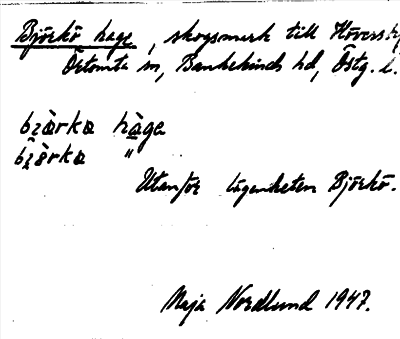 Björkö hage, skogsmark till Hövers
Örtomta sn, Bankekinds hd, Östg. l.
bzàrkα hàga
bzàrkα "
Utanför lägenheten Björkö.
Maja Nordlund 1947.